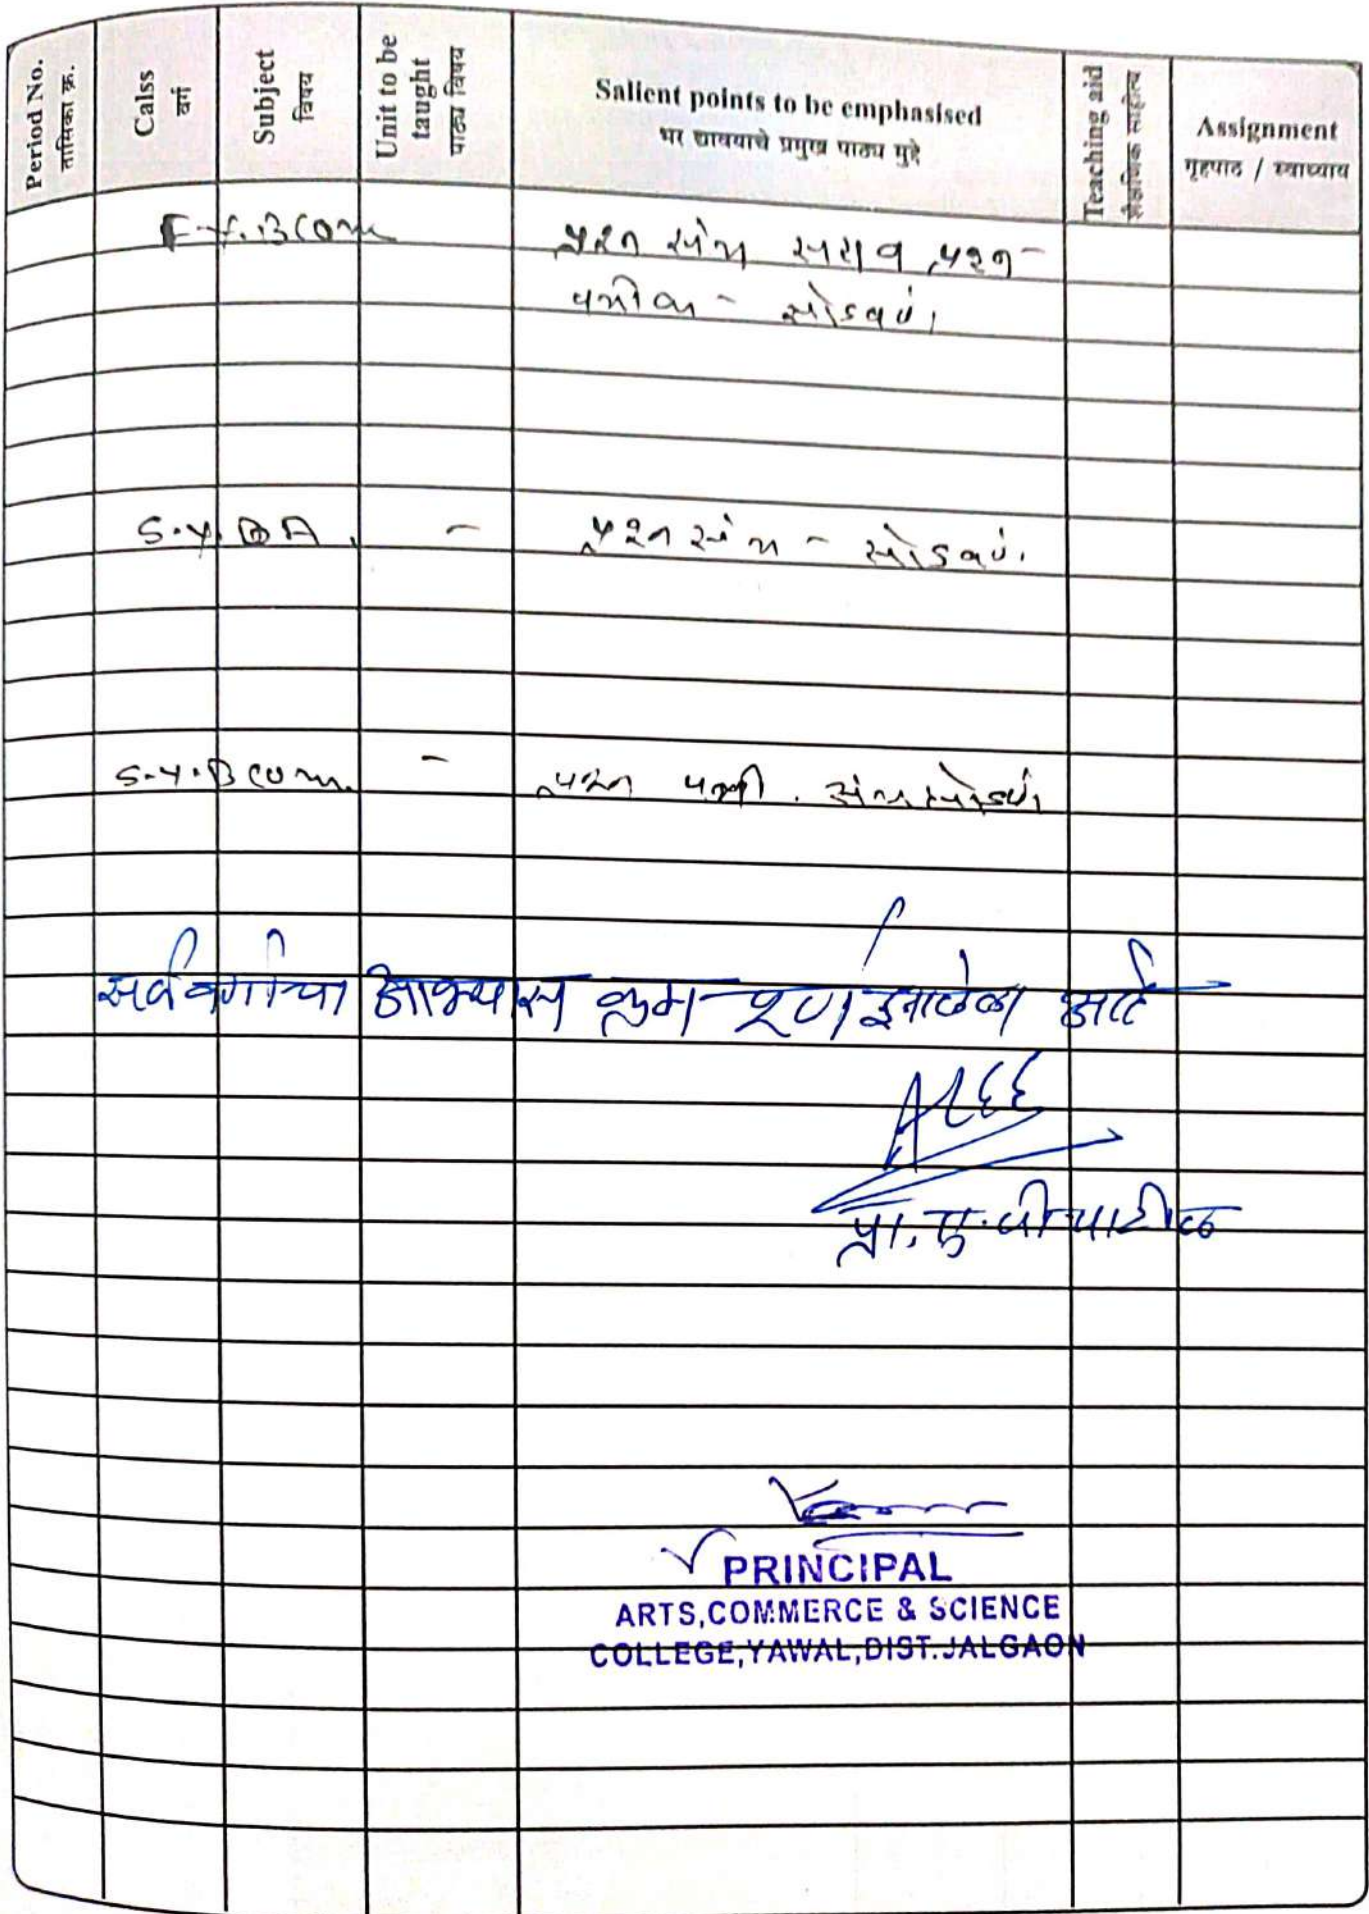 Period No.
तासिका क्र.
Calss
वर्ग
Subject
विषय
Unit to be
taught
पाठ्य विषय
Salient points to be emphasised
भर द्यावयाचे प्रमुख पाठ्य मुद्दे
Teaching aid
शैक्षणिक साहित्य
Assignment
गृहपाठ / स्वाध्याय
F.Y.BCom प्रश्न संच सराव प्रश्न-
सोडवणे.
S.Y.BA. - प्रश्न संच - सोडवणे.
S.Y.BCom. - प्रश्न संच सोडवणे
सर्व वर्गाचा अभ्यास क्रम पूर्ण झालेला आहे
प्रा. ए. पी पाटील
PRINCIPAL
ARTS,COMMERCE & SCIENCE
COLLEGE,YAWAL,DIST.JALGAON